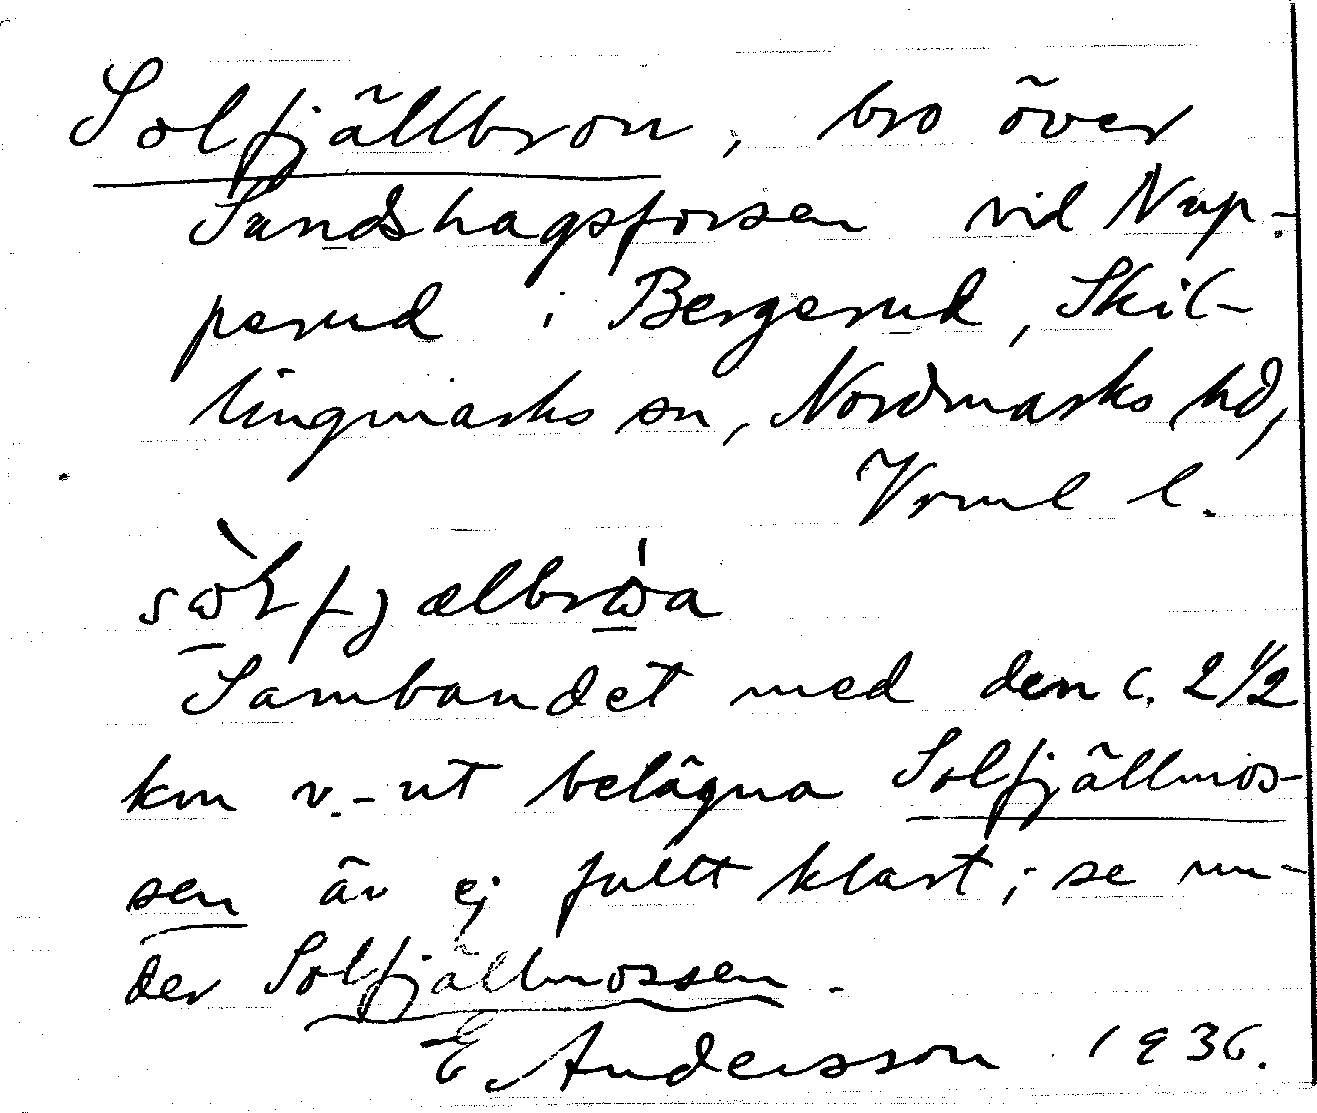 Solfjällbron, bro över
Sundshagsforsen vid Nup-
perud i Bergerud, Skil-
lingmarks sn, Nordmarks hd,
Vrml l.
sὼɫfjælbrὼa
Sambandet med den c. 2 1/2
km v-ut belägna Solfjällmos-
sen är ej fullt klart; se un-
der Solfjällmossen.
E Andersson 1936.